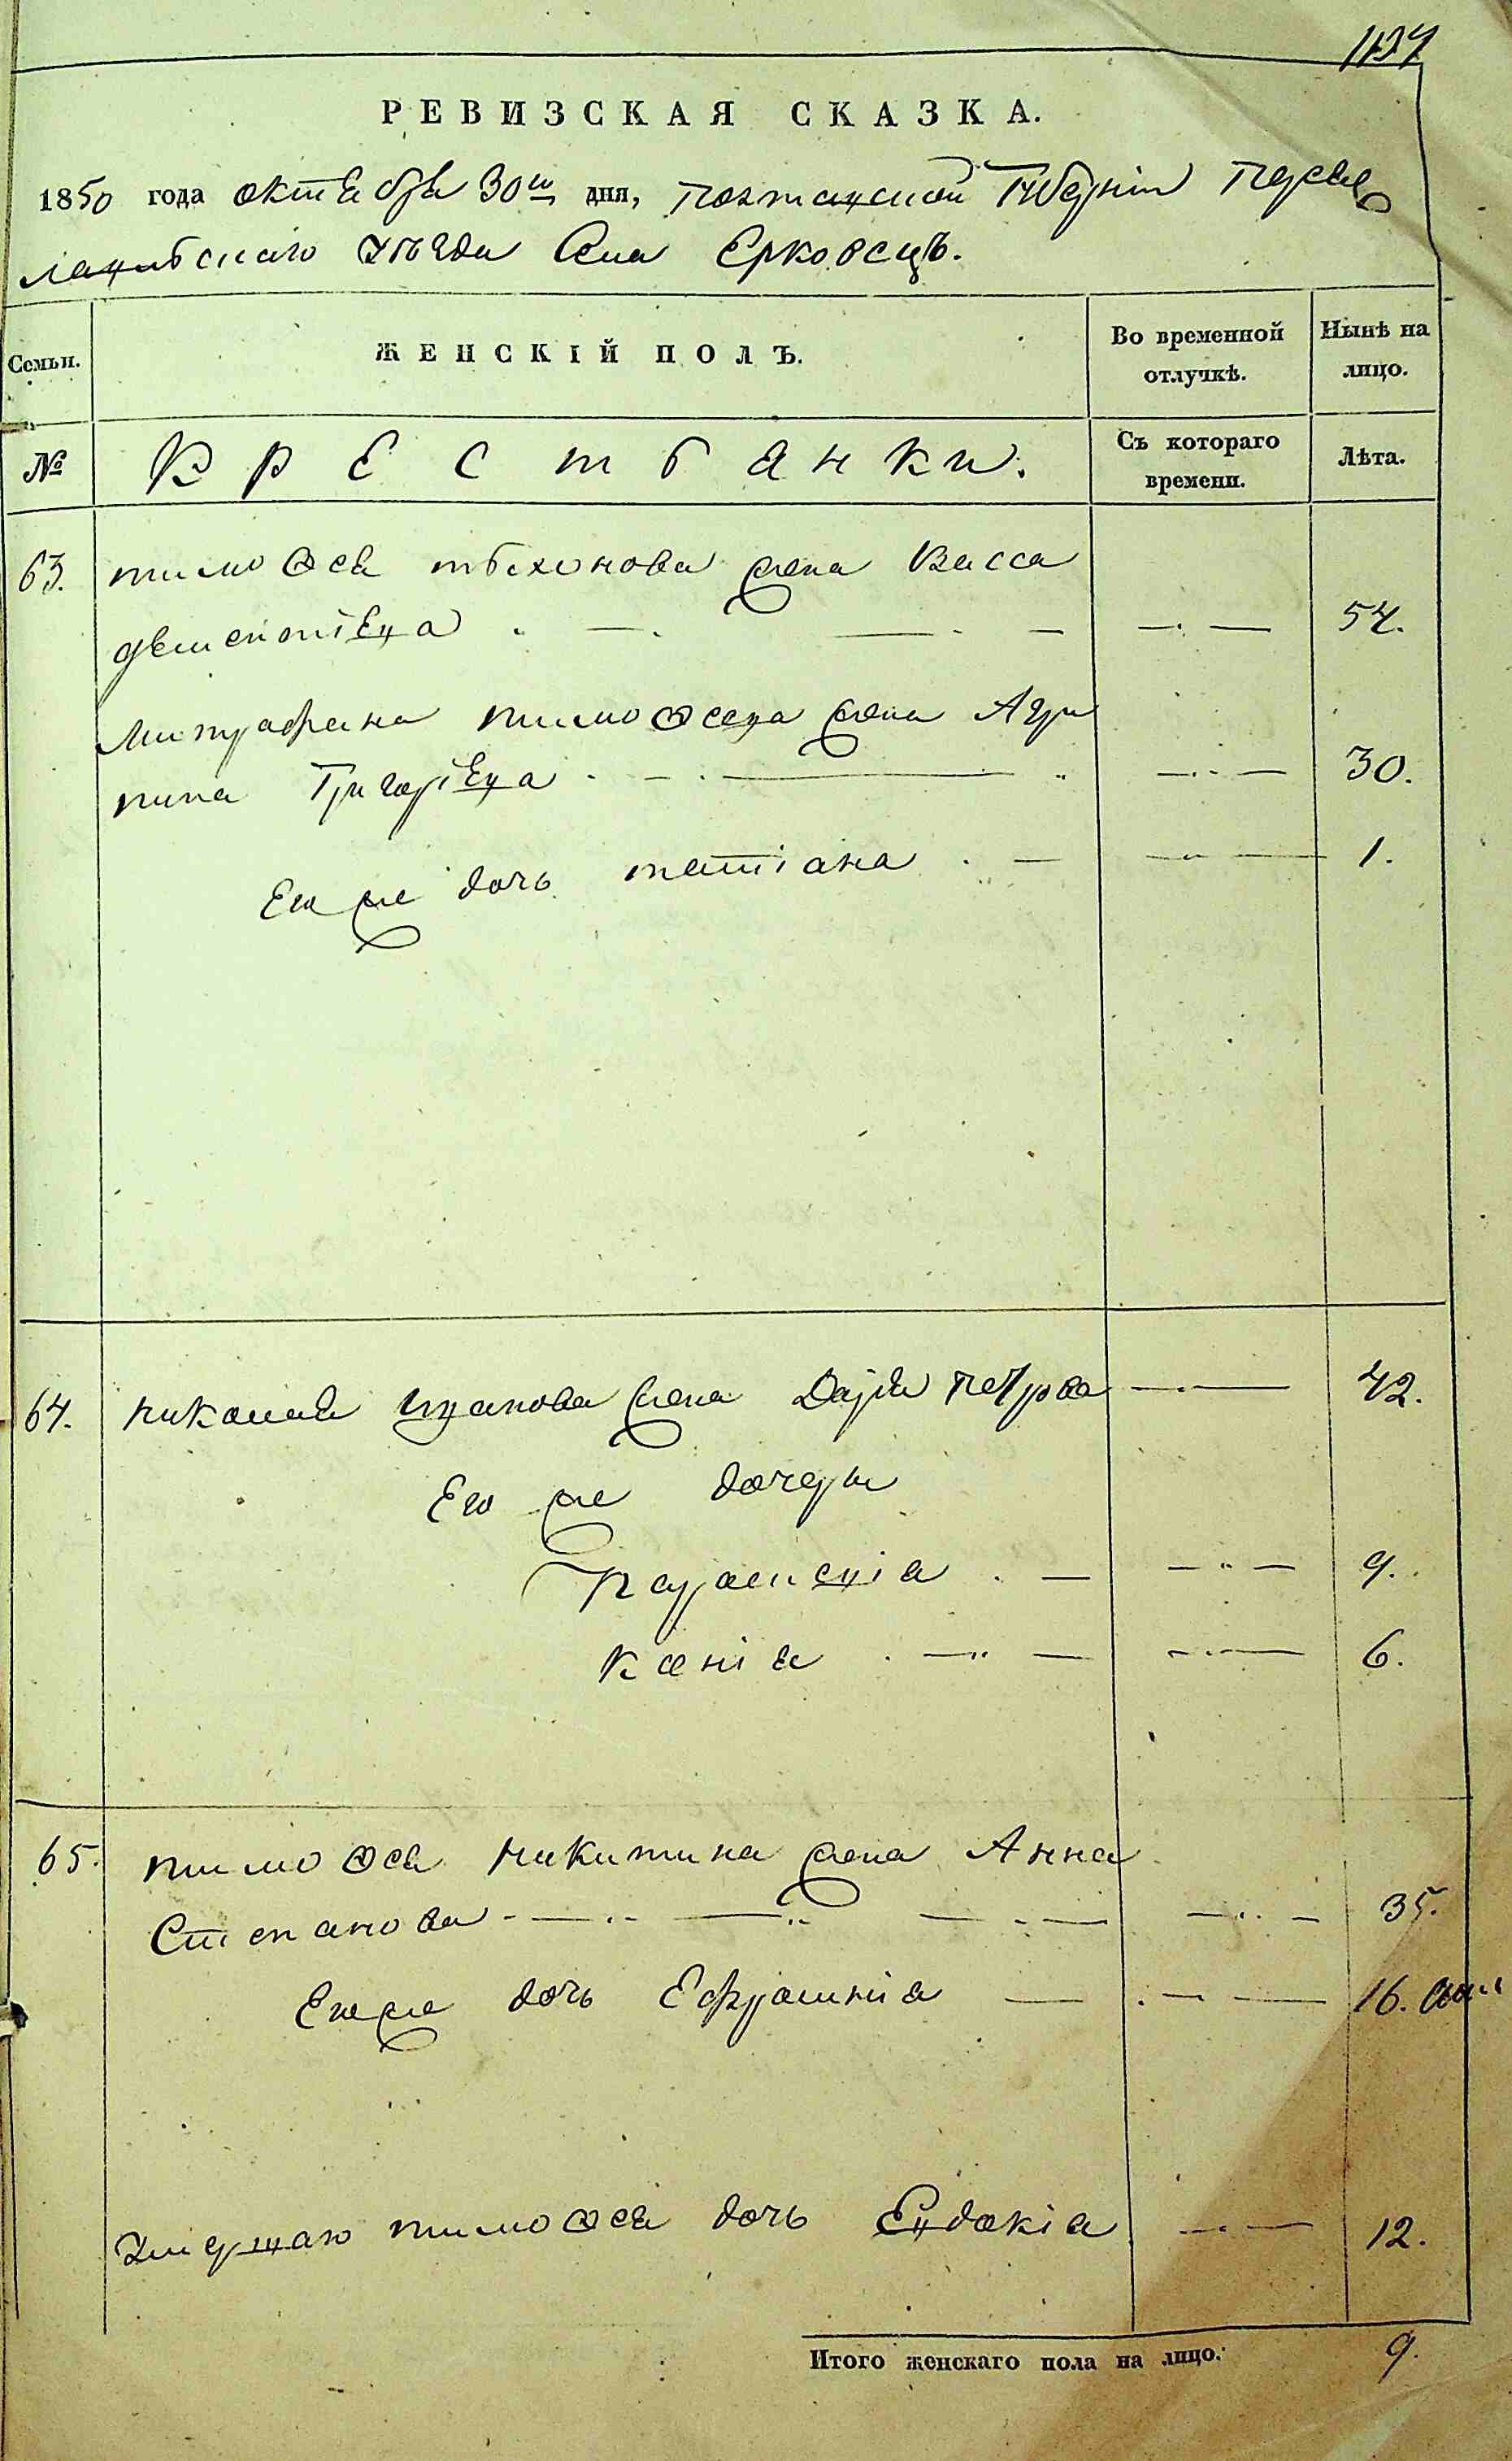 РЕВИЗСКАЯ СКАЗКА.
1850 года октября 30го дня, Полтавской Губерніи Переяс
лавскаго уѣзда Села Ерковецъ.
Семьи.
ЖЕНСКІЙ ПОЛЪ.
Во временной отлучкѣ.
Нынѣ на лицо.
№
Крестьянки.
Съ котораго времени.
Лѣта.
63. тимоѳея тихонова жена Васса
54.
митрафана тимоѳеева жена Агри
пина Григорієва 30.
Его же дочь татіана 1.
64. николая иванова жена Дарія петрова 42.
Его же дочери
Параскевія 9.
Ксенія 6.
65. тимоѳея никитина жена Анна
Степанова 35.
Его же дочь Ефросинія 16.
Умершаго тимоѳея дочь Евдокіа 12.
Итого женскаго пола на лицо. 9.